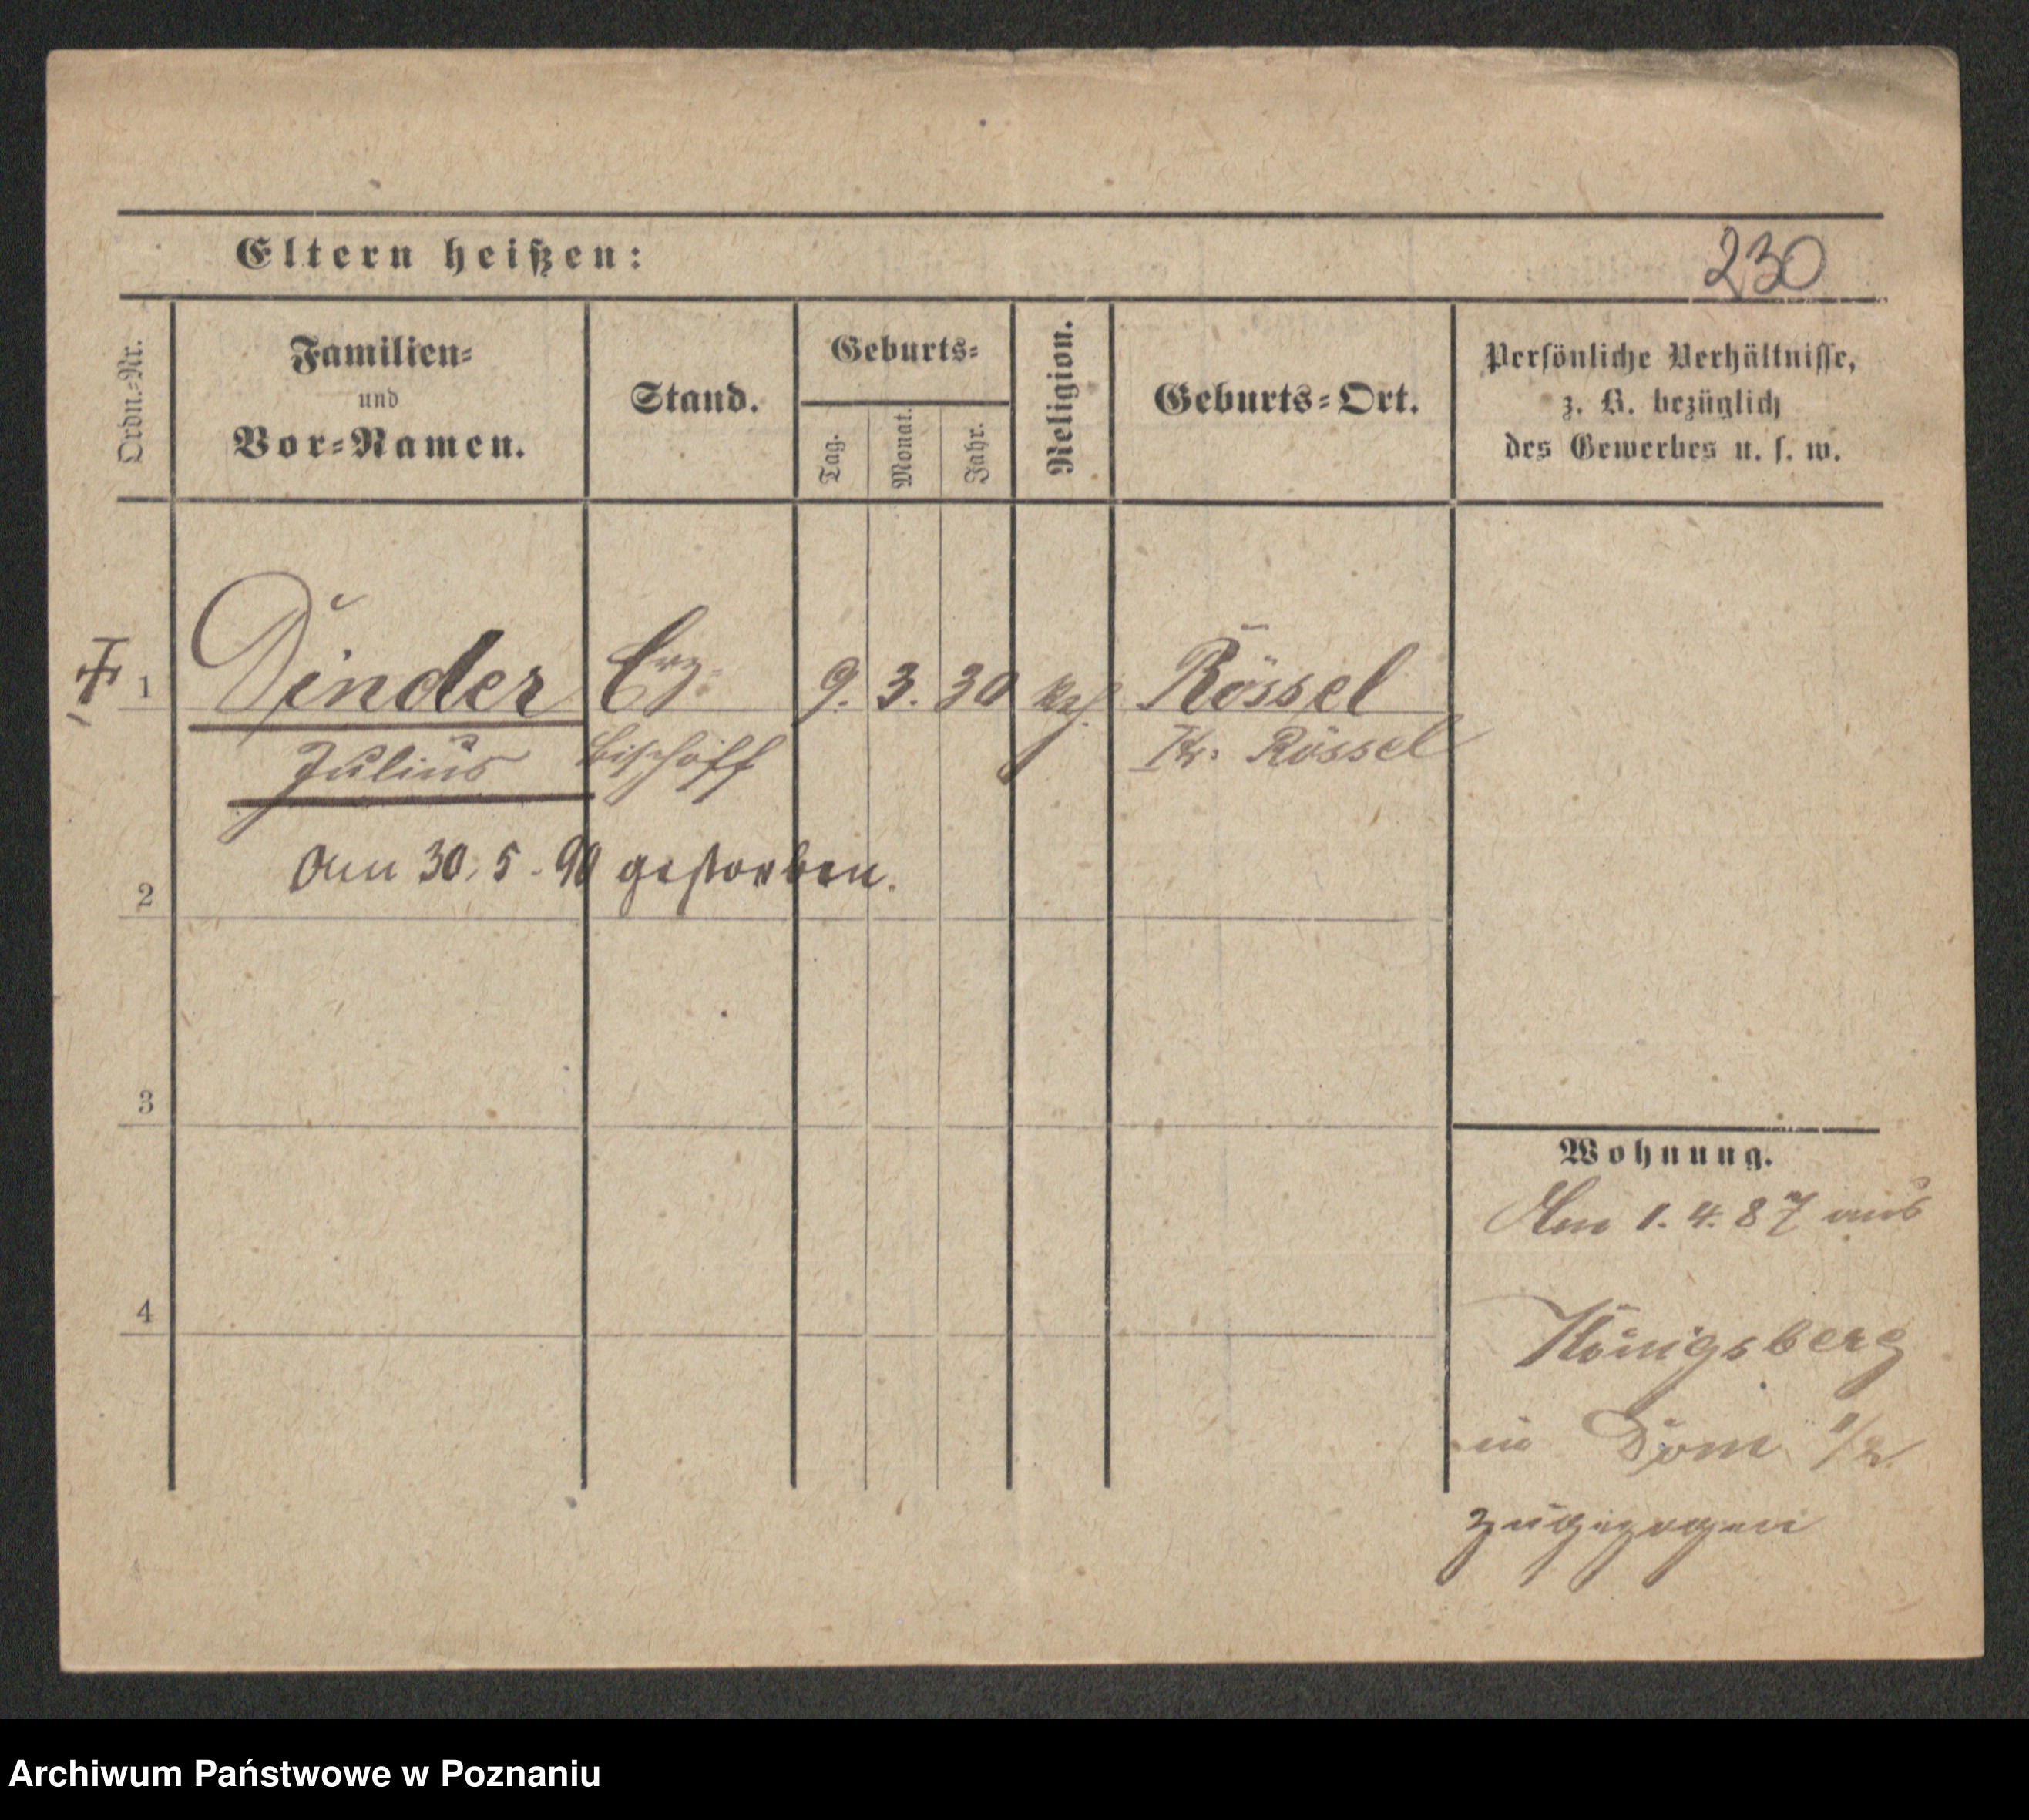 Eltern heißen:
230
Ordn.-Nr.
Familien-
und
Vor-Namen.
Stand.
Geburts-
Tag.
Monat.
Jahr.
Religion.
Geburts-Ort.
Persönliche Verhältnisse,
z. B. bezüglich
des Gewerbes u. s. w.
1 Dinder Erz- 9. 3. 30 kath. Rössel
Julius bischoff Kr. Rössel
Am 30. 5. 90 gestorben.
2
3
4
Wohnung.
Am 1. 4. 87 aus
Königsberg
in Dom 1/2
zugezogen
Archiwum Państwowe w Poznaniu